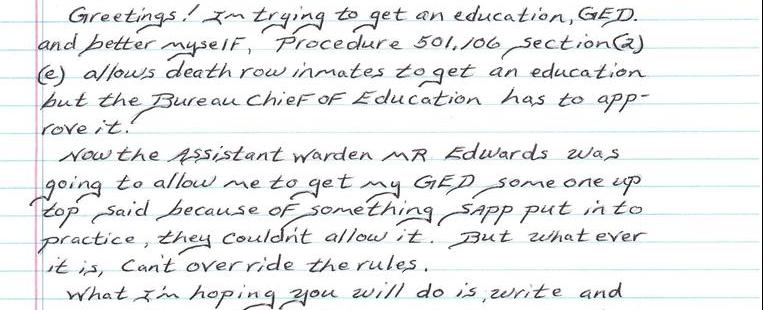 Greetings! I'm trying to get an education, GED.
and better myself, Procedure 501.106 section (2)
(e) allows death row inmates to get an education
but the Bureau Chief of Education has to app-
rove it.
Now the Assistant Warden MR Edwards was
going to allow me to get my GED some one up
top said because of something SAPP put in to
practice, they couldn't allow it. But what ever
it is, can't over ride the rules.
What I'm hoping you will do is, write and